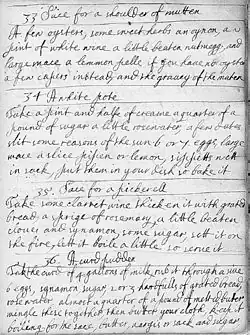 33 Sace for a shoulder of mutten
A few oysters, some sweet herbs an oynon, a
pint of white wine a little beaten nutmegg, and
large mace a lemmon pelle, if you have no oysters
a few capers instead, and the gravey of the muten
34 A white pote
Take a pint and halfe of creame a quarter of a
pound of sugar a little rosewater, a few dates
slit some reasons of the sun 6 or 7 eggs, large
mace a slice or lemon, sippitts
in sack, put them in your dish so bake it
35. Sace for a pickerell
Take some claret wine thicken it with grated
bread, a sprige of rosemary, a little beaten
cloves and synamon, some sugar, sett it on
the fire, lett it boile a little so serve it
36. A curd pudden
Take the curd of 4 gallons of milke, rub it through a sive
6 eggs, synamon sugar, 2 or 3 handfulls of grated bread,
rose water, almost a quarter of a pound of melted butter
mingle these together then butter your cloth, keep it
boiling, for the sace, butter, and sugar